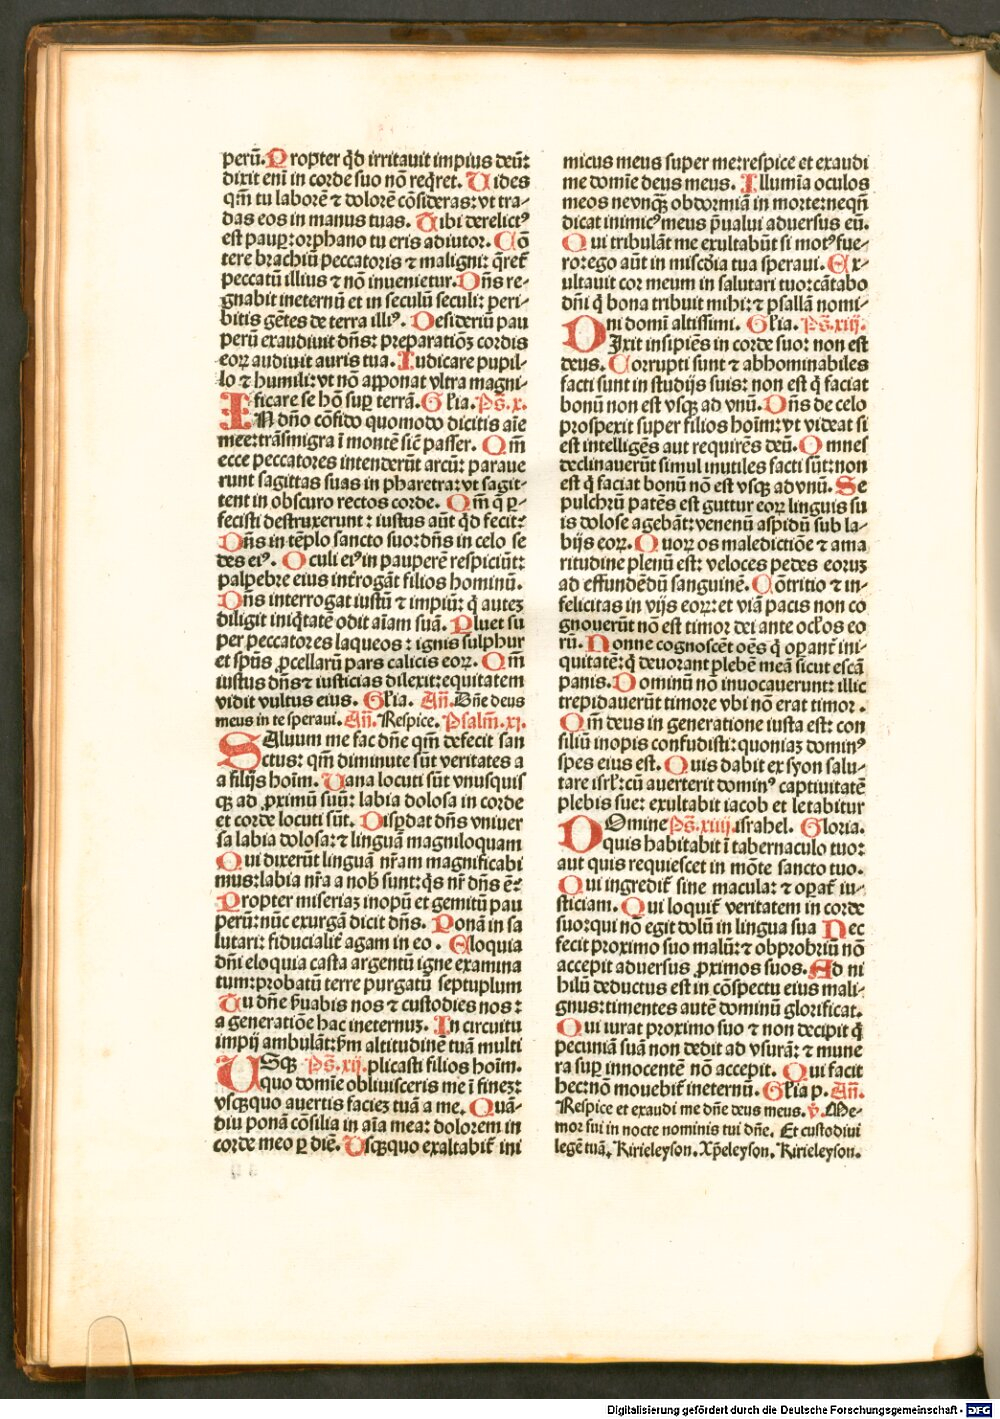 perū. Propter qđ irritauit impius deū:
dixit eni in corde suo nō reqret. Uides
qm̄ tu laborē ⁊ dolorē cōsideras: vt tra-
das eos in manus tuas. Tibi derelictꝰ
est paup: orphano tu eris adiutor. Cō
tere brachiū peccatoris ⁊ maligni: q̄ret᷑
peccatū illius ⁊ nō inuenietur. Dn̄s re-
gnabit ineternū et in seculū seculi: peri-
bitis gētes de terra illiꝰ. Desideriū pau
perū exaudiuit dn̄s: preparatiōꝫ cordis
eoꝝ audiuit auris tua. Iudicare pupil-
lo ⁊ humili: vt nō apponat vltra magni-
ficare se hō suꝑ terrā. Gl̄ia. Ps̄. x.
IN dn̄o cōfido quomodo dicitis aīe
mee: trāsmigra ī montē sic̄ passer. Qm̄
ecce peccatores intenderūt arcū: paraue
runt sagittas suas in pharetra: vt sagit-
tent in obscuro rectos corde. Qm̄ q̄ ꝑ-
fecisti destruxerunt: iustus aūt qđ fecit?
Dn̄s in tēplo sancto suo: dn̄s in celo se
des eiꝰ. Oculi eiꝰ in pauperē respiciūt:
palpebre eius int̄rogāt filios hominū.
Dn̄s interrogat iustū ⁊ impiū: q̄ auteꝫ
diligit iniqtatē odit aīam suā. Pluet su
per peccatores laqueos: ignis sulphur
et spūs ꝓcellarū pars calicis eoꝝ. Qm̄
iustus dn̄s ⁊ iusticias dilexit: equitatem
vidit vultus eius. Gl̄ia. An̄. Dn̄e deus
meus in te speraui. An̄. Respice. Psalm̄. xj.
SAluum me fac dn̄e qm̄ defecit san
ctus: qm̄ diminute sūt veritates a
a filijs hoīm. Uana locuti sūt vnusquis
qꝫ ad ꝓximū suū: labia dolosa in corde
et corde locuti sūt. Disꝑdat dn̄s vniuer
sa labia dolosa: ⁊ linguā magniloquam
Qui dixerūt linguā nr̄am magnificabi
mus: labia nr̄a a nob̄ sunt: q̄s nr̄ dn̄s ē?
Propter miseriaꝫ inopū et gemitū pau
perū: nūc exurgā dicit dn̄s. Ponā in sa
lutari: fiducialit᷑ agam in eo. Eloquia
dn̄i eloquia casta argentū igne examina
tum: probatū terre purgatū septuplum
Tu dn̄e ẜuabis nos ⁊ custodies nos:
a generatiōe hac ineternuꝫ. In circuitu
impij ambulāt: ẜm altitudinē tuā multi
USqꝫ Ps̄. xij. plicasti filios hoīm.
quo domīe obliuisceris me ī fineꝫ?
vsqꝫquo auertis facieꝫ tuā a me. Quā-
diu ponā cōsilia in aīa mea: dolorem in
corde meo ꝑ diē. Usqꝫquo exaltabit᷑ ini
micus meus super me: respice et exaudi
me domīe deus meus. Illumīa oculos
meos nevnqꝫ obdormiā in morte: neqn̄
dicat inimicꝰ meus p̄ualui aduersus eū.
Qui tribulāt me exultabūt si motꝰ fue-
ro: ego aūt in mīscdia tua speraui. Ex-
ultauit cor meum in salutari tuo: cātabo
dn̄i q̄ bona tribuit mihi: ⁊ psallā nomi-
ni domī altissimi. Gl̄ia. Ps̄. xiij.
DIxit insipiēs in corde suo: non est
deus. Corrupti sunt ⁊ abhominabiles
facti sunt in studijs suis: non est q̄ faciat
bonū non est vsqꝫ ad vnū. Dn̄s de celo
prospexit super filios hoīm: vt videat si
est intelligēs aut requirēs deū. Omnes
declinauerūt simul inutiles facti sūt: non
est q̄ faciat bonū nō est vsqꝫ ad vnū. Se
pulchrū patēs est guttur eoꝝ linguis su
is dolose agebāt: venenū aspidū sub la-
bijs eoꝝ. Quoꝝ os maledictiōe ⁊ ama
ritudine plenū est: veloces pedes eoruꝫ
ad effundēdū sanguinē. Cōtritio ⁊ in-
felicitas in vijs eoꝝ: et viā pacis non co
gnouerūt nō est timor dei ante oc̄los eo
rū. Nonne cognoscēt oēs q̄ oꝑant᷑ ini-
quitatē: q̄ deuorant plebē meā sicut escā
panis. Dominū nō inuocauerunt: illic
trepidauerūt timore vbi nō erat timor.
Qm̄ deus in generatione iusta est: con
siliū inopis confudisti: quoniaꝫ dominꝰ
spes eius est. Quis dabit ex syon salu-
tare isrl̄: cū auerterit dominꝰ captiuitatē
plebis sue: exultabit iacob et letabitur
DOmine Ps̄. xiiij. israhel. Gloria.
quis habitabit ī tabernaculo tuo:
aut quis requiescet in mōte sancto tuo.
Qui ingredit᷑ sine macula: ⁊ oꝑat᷑ iu-
sticiam. Qui loquit᷑ veritatem in corde
suo: qui nō egit dolū in lingua sua Nec
fecit proximo suo malū: ⁊ obprobriū nō
accepit aduersus ꝓximos suos. Ad ni
hilū deductus est in cōspectu eius mali-
gnus: timentes autē dominū glorificat.
Qui iurat proximo suo ⁊ non decipit q̄
pecuniā suā non dedit ad vsurā: ⁊ mune
ra suꝑ innocentē nō accepit. Qui facit
hec: nō mouebit᷑ ineternū. Gl̄ia p. An̄.
Respice et exaudi me dn̄e deus meus. ℣. Me-
mor fui in nocte nominis tui dn̄e. Et custodiui
legē tuā. Kirieleyson. Xp̄eleyson. Kirieleyson.
Digitalisierung gefördert durch die Deutsche Forschungsgemeinschaft - DFG